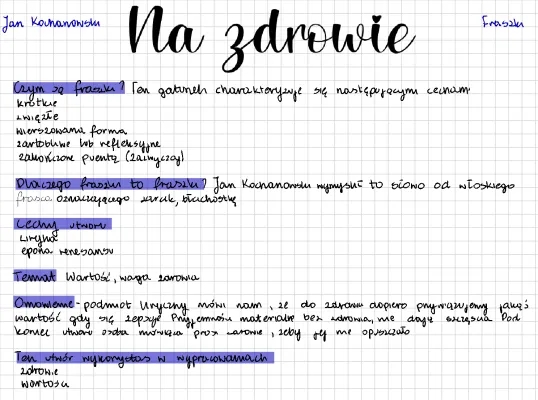 Jan Kochanowski
Na zdrowie
Fraszki
Czym są fraszki? Ten gatunek charakteryzuje się następującymi cechami
krótkie
zwięzłe
wierszowana forma
żartobliwe lub refleksyjne
zakończone puentą (zazwyczaj)
Dlaczego fraszki to fraszki? Jan Kochanowski wymyślił to słowo od włoskiego
frasca oznaczającego żarcik, błachostkę
Cechy utworu
liryka
epoka renesansu
Temat Wartość, waga zdrowia
Omówienie - podmiot liryczny mówi nam, że do zdrowia dopiero przywiązujemy jakąś
wartość gdy się zepsuje Przyjemności materialne bez zdrowia, nie dają szczęścia Pod
koniec utworu osoba mówiąca prosi zdrowie, żeby jej nie opuszczało
Ten utwór wykorzystasz w wypracowaniach
zdrowie
wartości